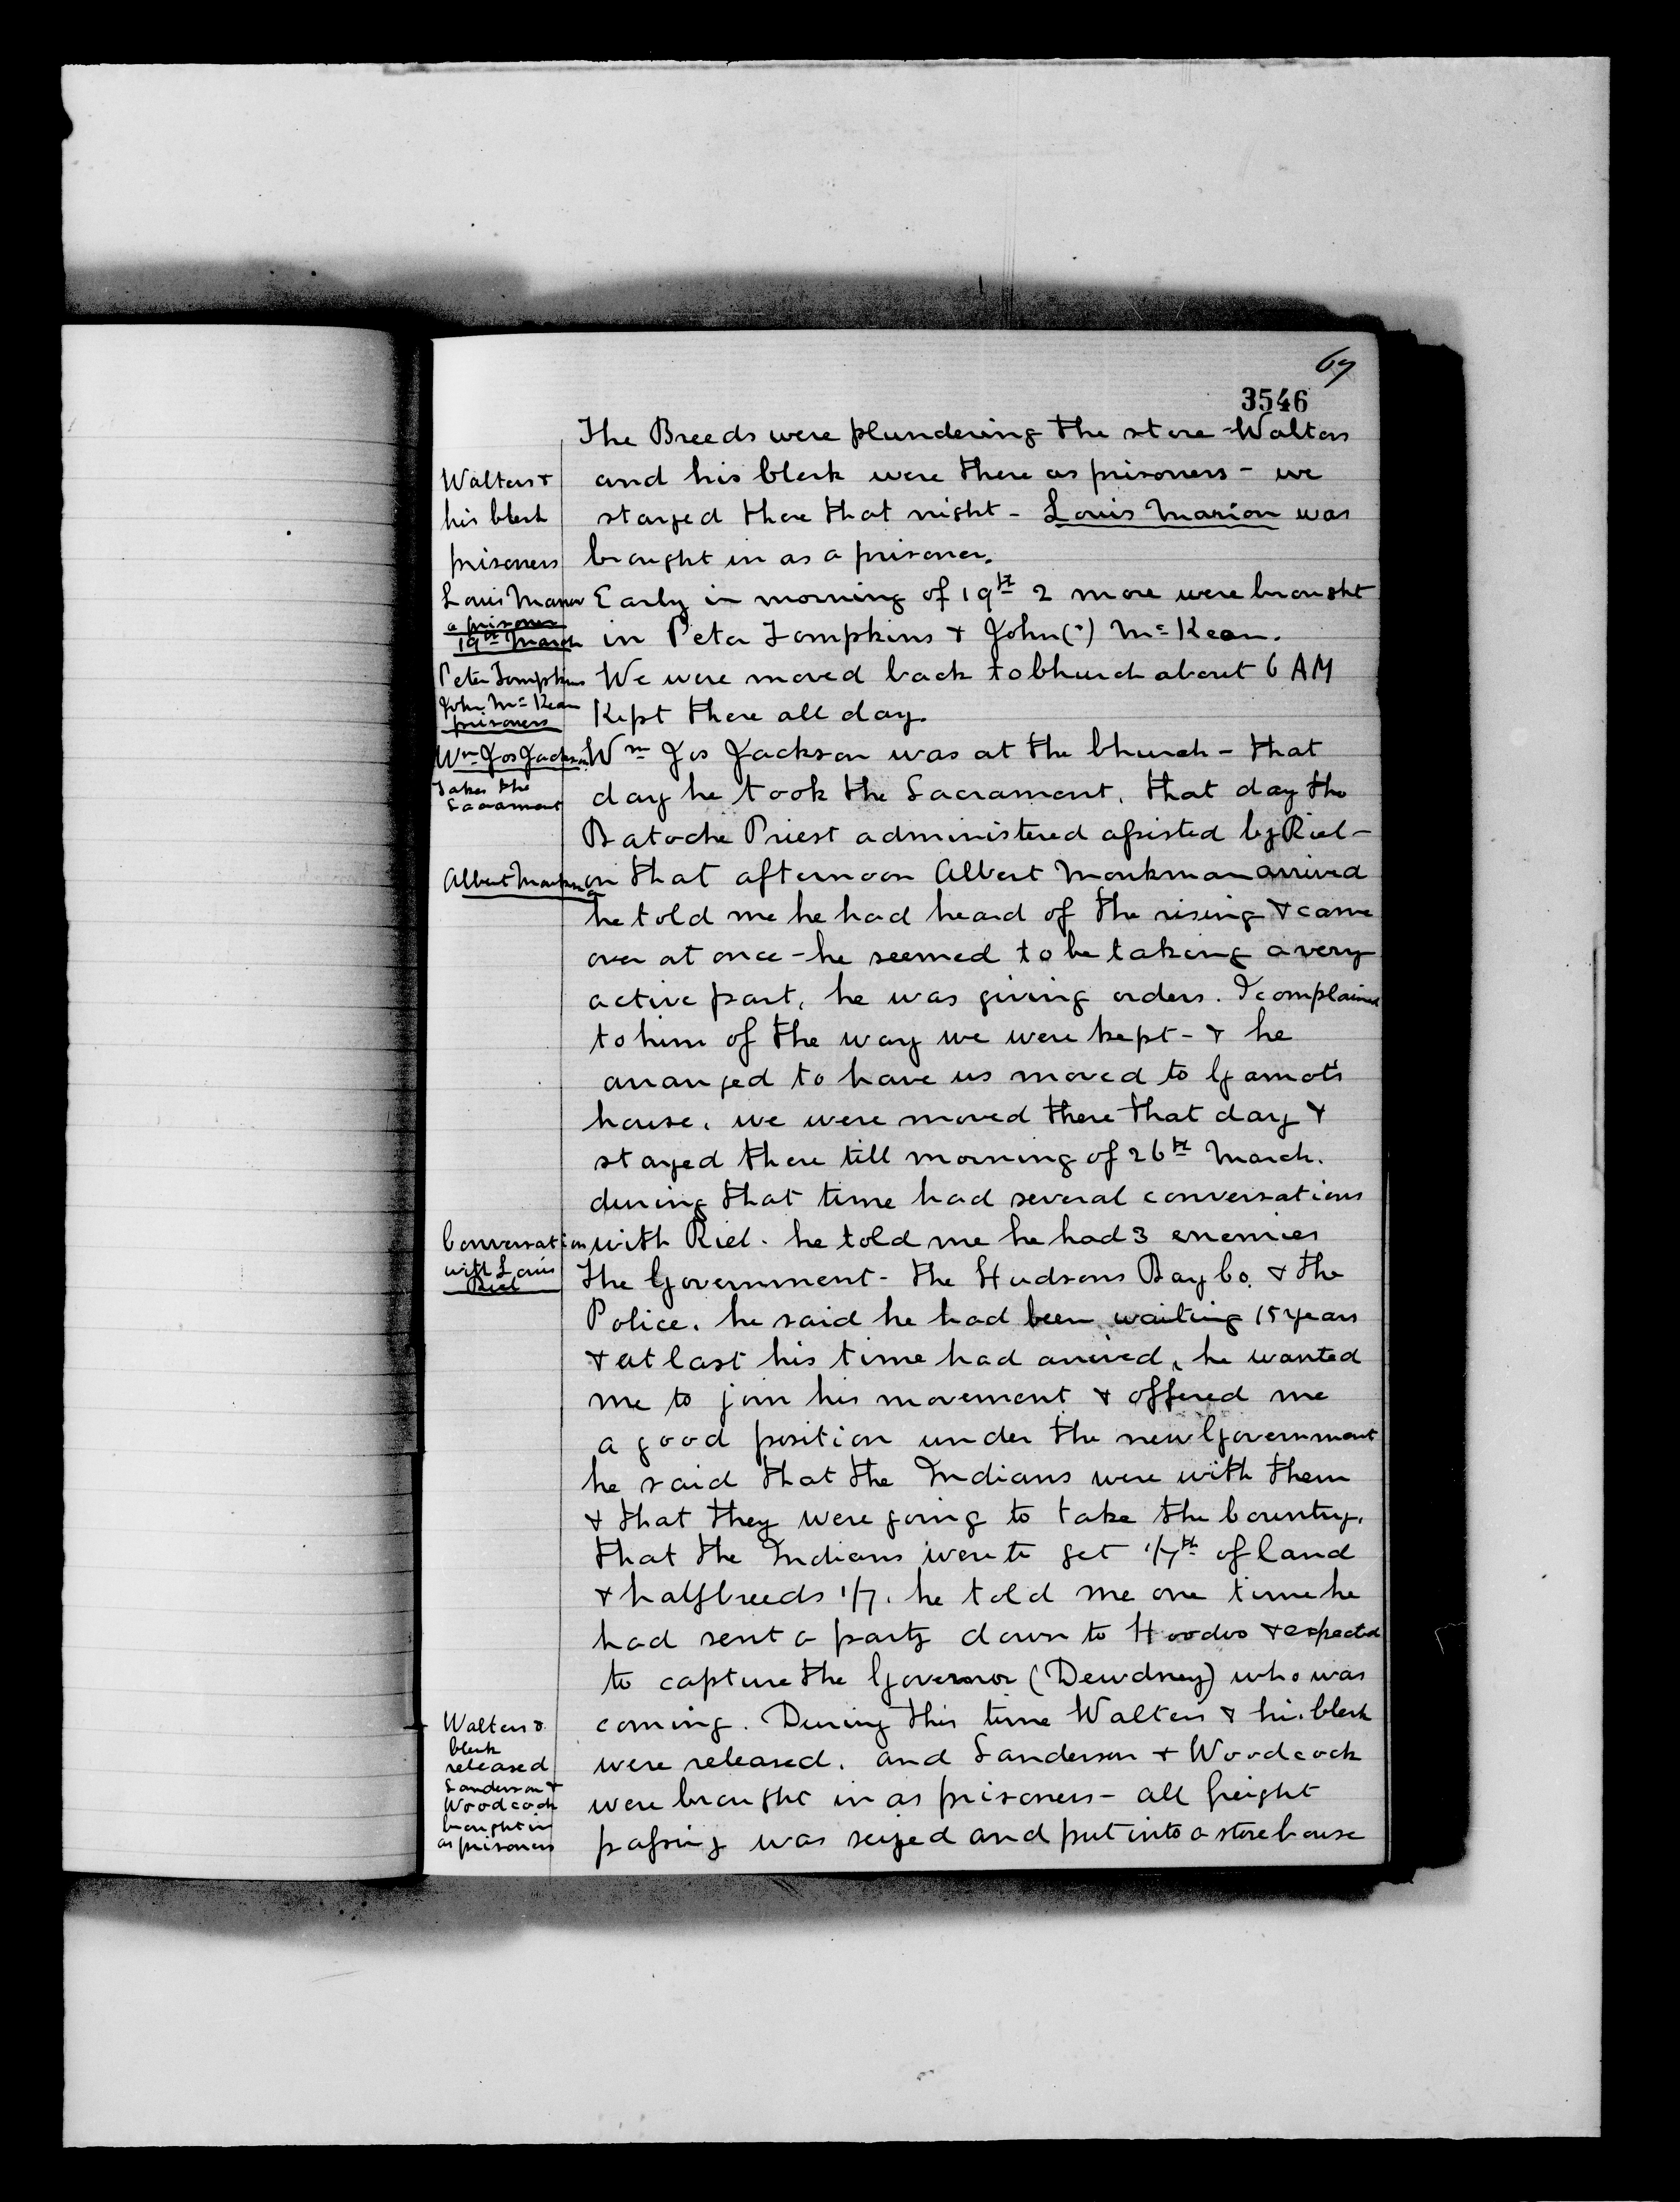 69
3546
The Breeds were plundering the store - Walters
and his Clerk were there as prisoners - we
stayed there that night - Louis Marion was
brought in as a prisoner.
Early in morning of 19th 2 more were brought
in Peter Tompkins & John(") McKean.
We were moved back to Church about 6 AM
Kept there all day.
Wm Jos Jackson was at the Church - that
day he took the Sacrament, that day the
Batoche Priest administered assisted by Riel -
on that afternoon Albert Monkman arrived
he told me he had heard of the rising & came
over at once - he seemed to be taking a very
active part, he was giving orders. I complained
to him of the way we were kept - & he
arranged to have us moved to Garnot's
house, we were moved there that day &
stayed there till morning of 26th March.
during that time had several conversations
with Riel. he told me he had 3 enemies
the Government - the Hudsons Bay Co. & the
Police. he said he had been waiting 15 years
& at last his time had arrived, he wanted
me to join his movement & offered me
a good position under the new Government
he said that the Indians were with them
& that they were going to take the Country,
that the Indians were to get 1/7th of land
& halfbreeds 1/7. he told me one time he
had sent a party down to Hoodoo & expected
to capture the Governor (Dewdney) who was
coming. During this time Walters & his Clerk
were released. and Sanderson & Woodcock
were brought in as prisoners - all freight
passing was seized and put into a storehouse
Walters &
his Clerk
prisoners
Louis Marion
a prisoner
19th March
Peter Tompkins
John McKean
prisoners
Wm Jos Jackson
Takes the
Sacrament
Albert Monkman
Conversation
with Louis
Riel
Walters &
Clerk
released
Sanderson &
Woodcock
brought in
as prisoners